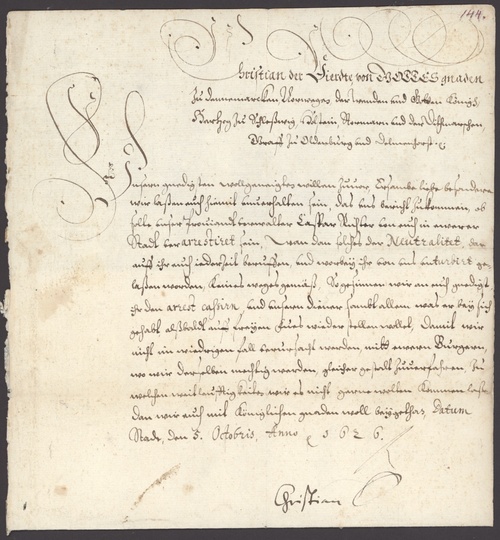 144.
Christian der Vierdte von GOTTES gnaden
zu Dennemarcken, Norwegen, der Wenden und Gotten König,
Hertzog zu Schleßwig, Holstein, Stormarn und der Ditmarschen,
Graff zu Oldenburg und Delmenhorst
Unsern gnedigsten wollgeneigten willen zuvor, Ersame liebe besondere
wir laßen euch hiemit unverhalten sein, das uns bericht zukommen, ob
solte unser Proviandt verwalter Caspar Richter bey euch in ewerer
Stadt ver arrestiret sein, Wan den solches der Neutralitet, der
auff ihr euch iederzeit beruffen, und worbey ihr von uns unturbirt ge
laßen worden, Keines weges gemäß, So gesinnen wir an euch gnedigst
ihr den arrest cassirn, und unsern diener sambt allem was er bey sich
gehabt alßbaldt auff freyen fues wieder stellen wollet, damit wir
nicht im wiedrigen fall verursacht werden, mitt eweren Bürgern,
wo wir derselben mechtig werden, gleicher gestalt zuverfahren, Zu
welchen weitleufftigkeiten wir es nicht gerne wolten kommen laßen
dan wir euch mit Königlichen gnaden woll beygethan, Datum
Stade, den 5. Octobris, Anno 1626.
Christian